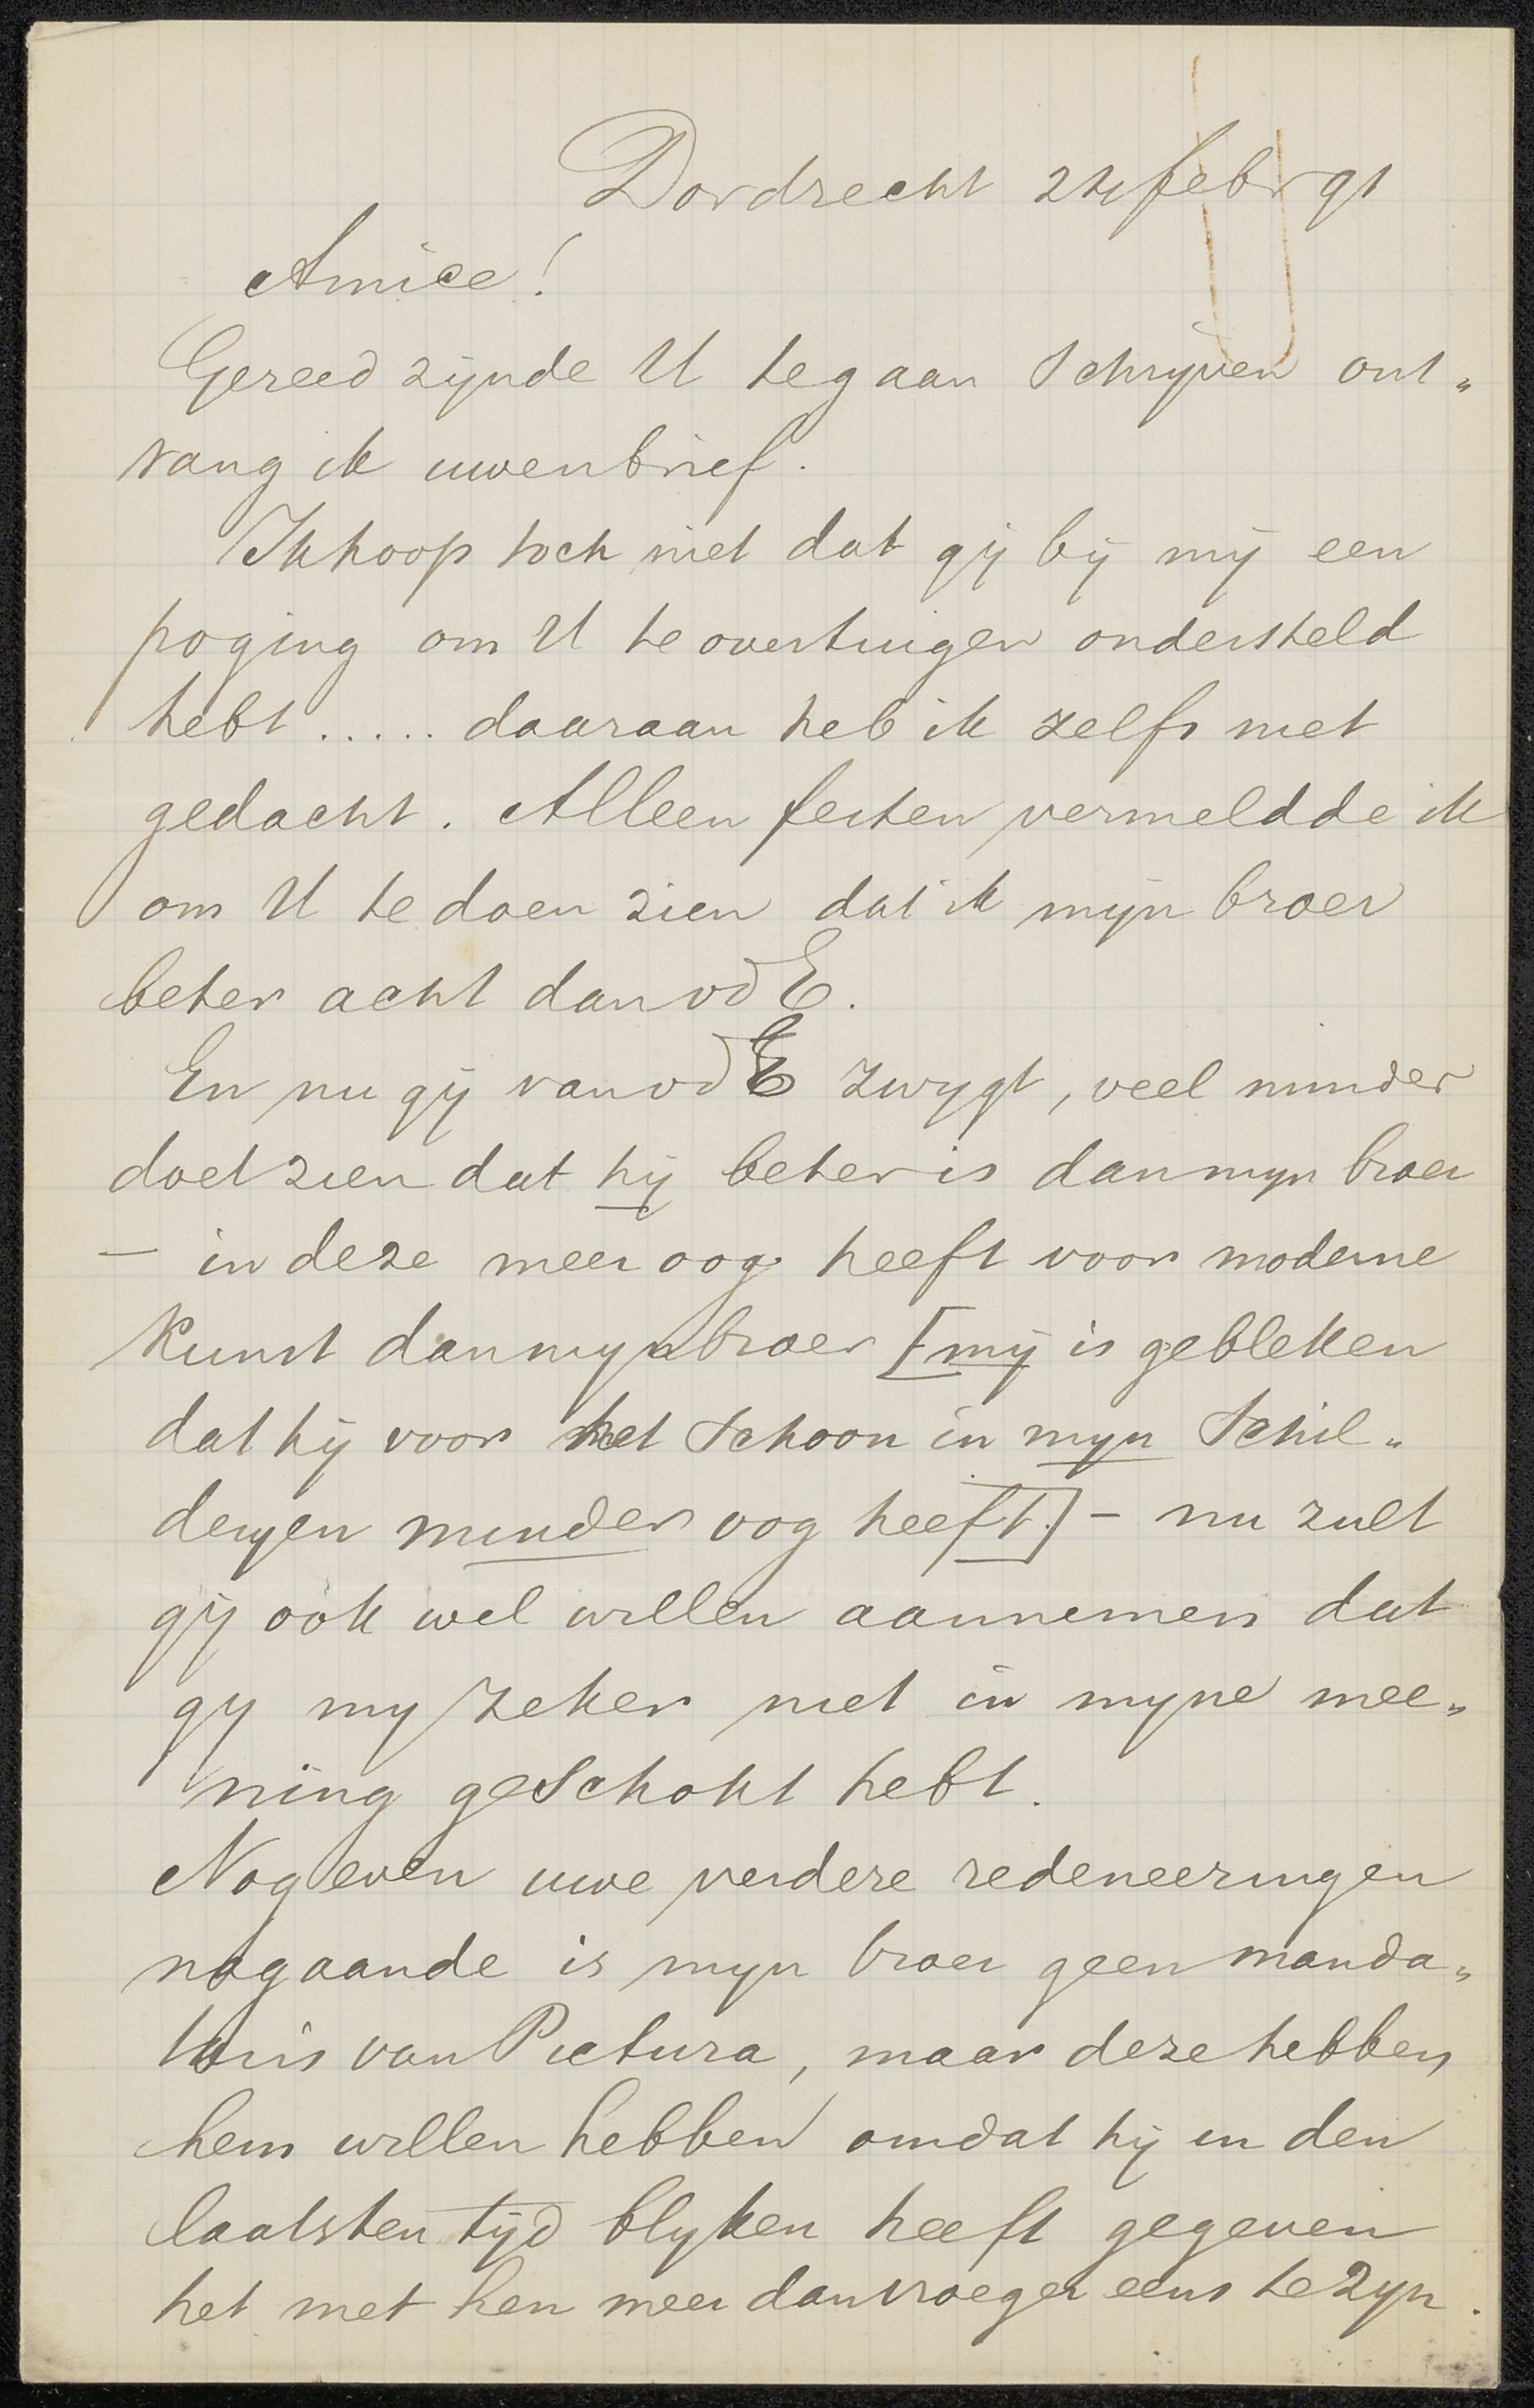 Dordrecht 24 febr 91
Amice!
Gereed zijnde U te gaan schrijven ont„
vang ik uwen brief.
Ik hoop toch niet dat gij bij mij een
poging om U te overtuigen ondersteld
hebt ..... daaraan heb ik zelfs niet
gedacht. Alleen feiten vermeldde ik
om U te doen zien dat ik mijn broer
beter acht dan vd E.
En nu gij van vd E zwygt, veel minder
doet zien dat hij beter is dan myn broer
— in deze meer oog heeft voor moderne
kunst dan myn broer [mij is gebleken
dat hij voor het schoon in myn schil„
deryen minder oog heeft] — nu zult
gij ook wel willen aannemen dat
gy my zeker niet in myne mee„
ning geschokt hebt.
Nog even uwe verdere redeneeringen
nagaande is myn broer geen manda„
taris van Pictura, maar deze hebben
hem willen hebben omdat hij in den
laatsten tijd blyken heeft gegeven
het met hen meer dan vroeger eens te zyn.